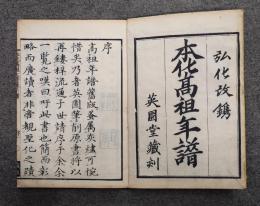 弘化改鐫
本化高祖年譜
英園堂藏刻
序
高祖年譜舊版蠧蝕可惋
惜矣乃者英園筆削原書將以
再鏤梓流通于世請序于余余
一覧之嘆曰呼此書也簡而彰
略而廣讀者非啻観聖化之蹟